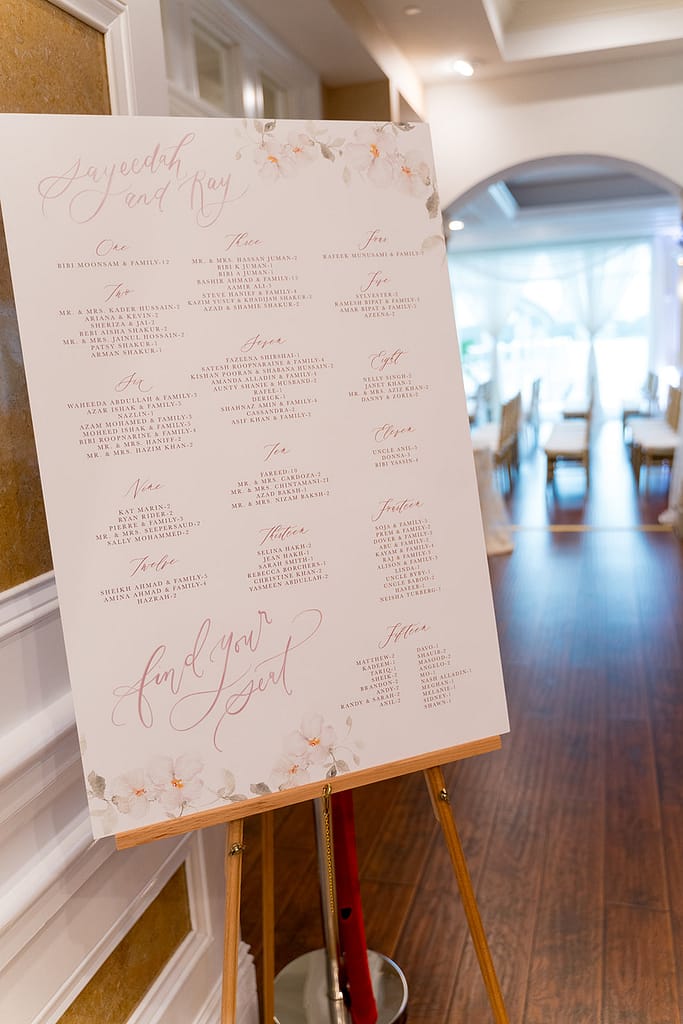 Sayeedah
and Ray
One
BIBI MOONSAM & FAMILY-12
Two
MR. & MRS. KADER HUSSAIN-2
ARIANA & KEVIN-2
SHERIZA & JAI-2
BEBI AISHA SHAKUR-2
MR. & MRS. JAINUL HOSSAIN-2
PATSY SHAKUR-1
ARMAN SHAKUR-1
Three
MR. & MRS. HASSAN JUMAN-2
BIBI K JUMAN-1
BIBI A JUMAN-1
BASHIR AHMAD & FAMILY-12
AAMIR ALI-3
STEVE HANIEF & FAMILY-4
KAZIM YUSUF & KHADIJAH SHAKUR-2
AZAD & SHAMIE SHAKUR-2
Four
RAFEEK MUNUSAMI & FAMILY-7
Five
SYLVESTER-2
RAMESH RIPAT & FAMILY-3
AMAR RIPAT & FAMILY-3
AZEENA-2
Six
WAHEEDA ABDULLAH & FAMILY-3
AZAR ISHAK & FAMILY-3
NAZLIN-3
AZAM MOHAMED & FAMILY-3
MOHEED ISHAK & FAMILY-5
BIBI ROOPNARINE & FAMILY-4
MR. & MRS. HANIFF-2
MR. & MRS. HAZIM KHAN-2
Seven
FAZEENA SHIBSHAI-1
SATESH ROOPNARAINE & FAMILY-4
KISHAN POORAN & SHABANA HUSSAIN-2
AMANDA ALLADIN & FAMILY-4
AUNTY SHANIE & HUSBAND-2
RAFEE-1
DERICK-1
SHAHNAZ AMIN & FAMILY-4
CASSANDRA-2
ASIF KHAN & FAMILY-2
Eight
NELLY SINGH-2
JANET KHAN-2
MR. & MRS. AZIZ KHAN-2
DANNY & ZORIA-2
Nine
KAT MARIN-2
RYAN RIDER-2
PIERRE & FAMILY-3
MR. & MRS. SEEPERSAUD-2
SALLY MOHAMMED-2
Ten
FAREED-10
MR. & MRS. CARDOZA-2
MR. & MRS. CHINTAMANI-21
AZAD BAKSH-1
MR. & MRS. NIZAM BAKSH-2
Eleven
UNCLE ANIL-5
DONNA-3
BIBI YASSIN-4
Twelve
SHEIKH AHMAD & FAMILY-5
AMINA AHMAD & FAMILY-4
HAZRAH-2
Thirteen
SELINA HAKH-2
JEAN HAKH-1
SARAH SMITH-1
REBECCA BORCHERS-1
CHRISTINE KHAN-2
YASMEEN ABDULLAH-2
Fourteen
SOJA & FAMILY-3
PREM & FAMILY-2
DOVER & FAMILY-3
ABU & FAMILY-2
KAYAM & FAMILY-3
RAJ & FAMILY-3
ALISON & FAMILY-3
LINDA-1
UNCLE PAPY-1
UNCLE BABOO-2
HASEEB-1
NEISHA TURBERG-1
Fifteen
MATTHEW-2
KADEEM-1
TARIQ-1
SHEIK-2
BRANDON-2
ANDY-2
RANDY & SARAH-2
ANIL-2
DAVO-1
SHAUIB-2
MASOOD-2
ANGELO-2
MO-1
NASH ALLADIN-1
MEGHAN-1
MELANIE-1
SIDNEY-1
SHAWN-1
find your
seat